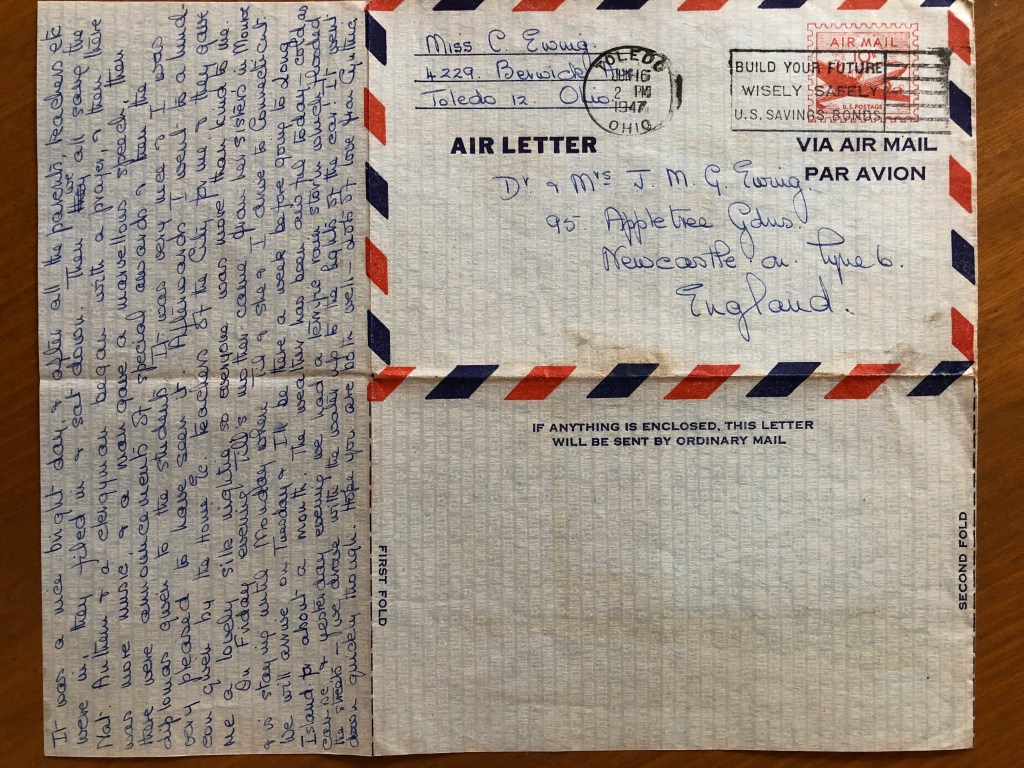 Miss C. Ewing.
4229. Berwick
Toledo 12. Ohio.
TOLEDO
JUN 16
2 PM
1947
OHIO
AIR MAIL
10¢
U.S. POSTAGE
BUILD YOUR FUTURE
WISELY SAFELY
U.S. SAVINGS BONDS
AIR LETTER
VIA AIR MAIL
PAR AVION
Dr & Mrs J. M. G. Ewing.
95. Appletree Gdns.
Newcastle on Tyne 6.
England.
IF ANYTHING IS ENCLOSED, THIS LETTER
WILL BE SENT BY ORDINARY MAIL
FIRST FOLD
SECOND FOLD
It was a nice bright day, & after all the parents, teachers etc
were in, they filed in & sat down. Then we all sang the
Nat. Anthem & a clergyman began with a prayer, & then there
was more music, & a man gave a marvellous speach, then
there were announcements of special awards & then the
diplomas given to the students. It was very nice & I was
very pleased to have seen it. Afterwards I went to a lunch
eon given by the Home Ec. teachers of the City for me & they gave
me a lovely silk nighty so everyone was more than kind to me
On Friday evening Till's mother came from her sister's in Monroe
& is staying until Monday when Till & she & I drive to Connecticut.
We will arrive on Tuesday & I'll be there a week before going to Long
Island for about a month. The weather has been awful today, cold as
can be & yesterday evening we had a terrific rain storm which flooded
the streets – we drove with the water up to the lights of the car! It went
down quickly though. Hope you are both well – lots of love from Cynthia